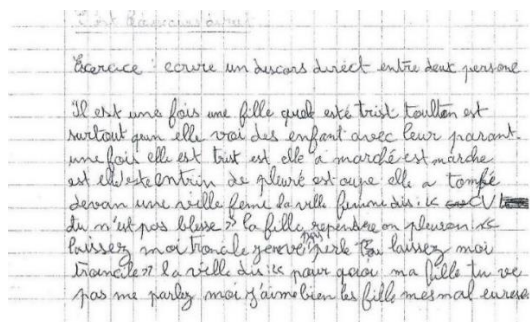 Exercice : ecrire un discors direct entre deux persone
Il est une fois une fille quel esté trist toulten est
surtout quan elle voi des enfant avec leur parant.
une fois elle est trist est elle a marché est marche
est elle este entrin de pleuré est oupe elle a tombé
devan une ville feme la ville femme dis : «
du n'est pas blese » la fille rependre on pleuron : «
laissez moi trancile je parle laissez moi
trancile » la ville dis : « pour quoi ma fille tu ve
pas me parlez moi j'aime bien les fille mes mal eurese